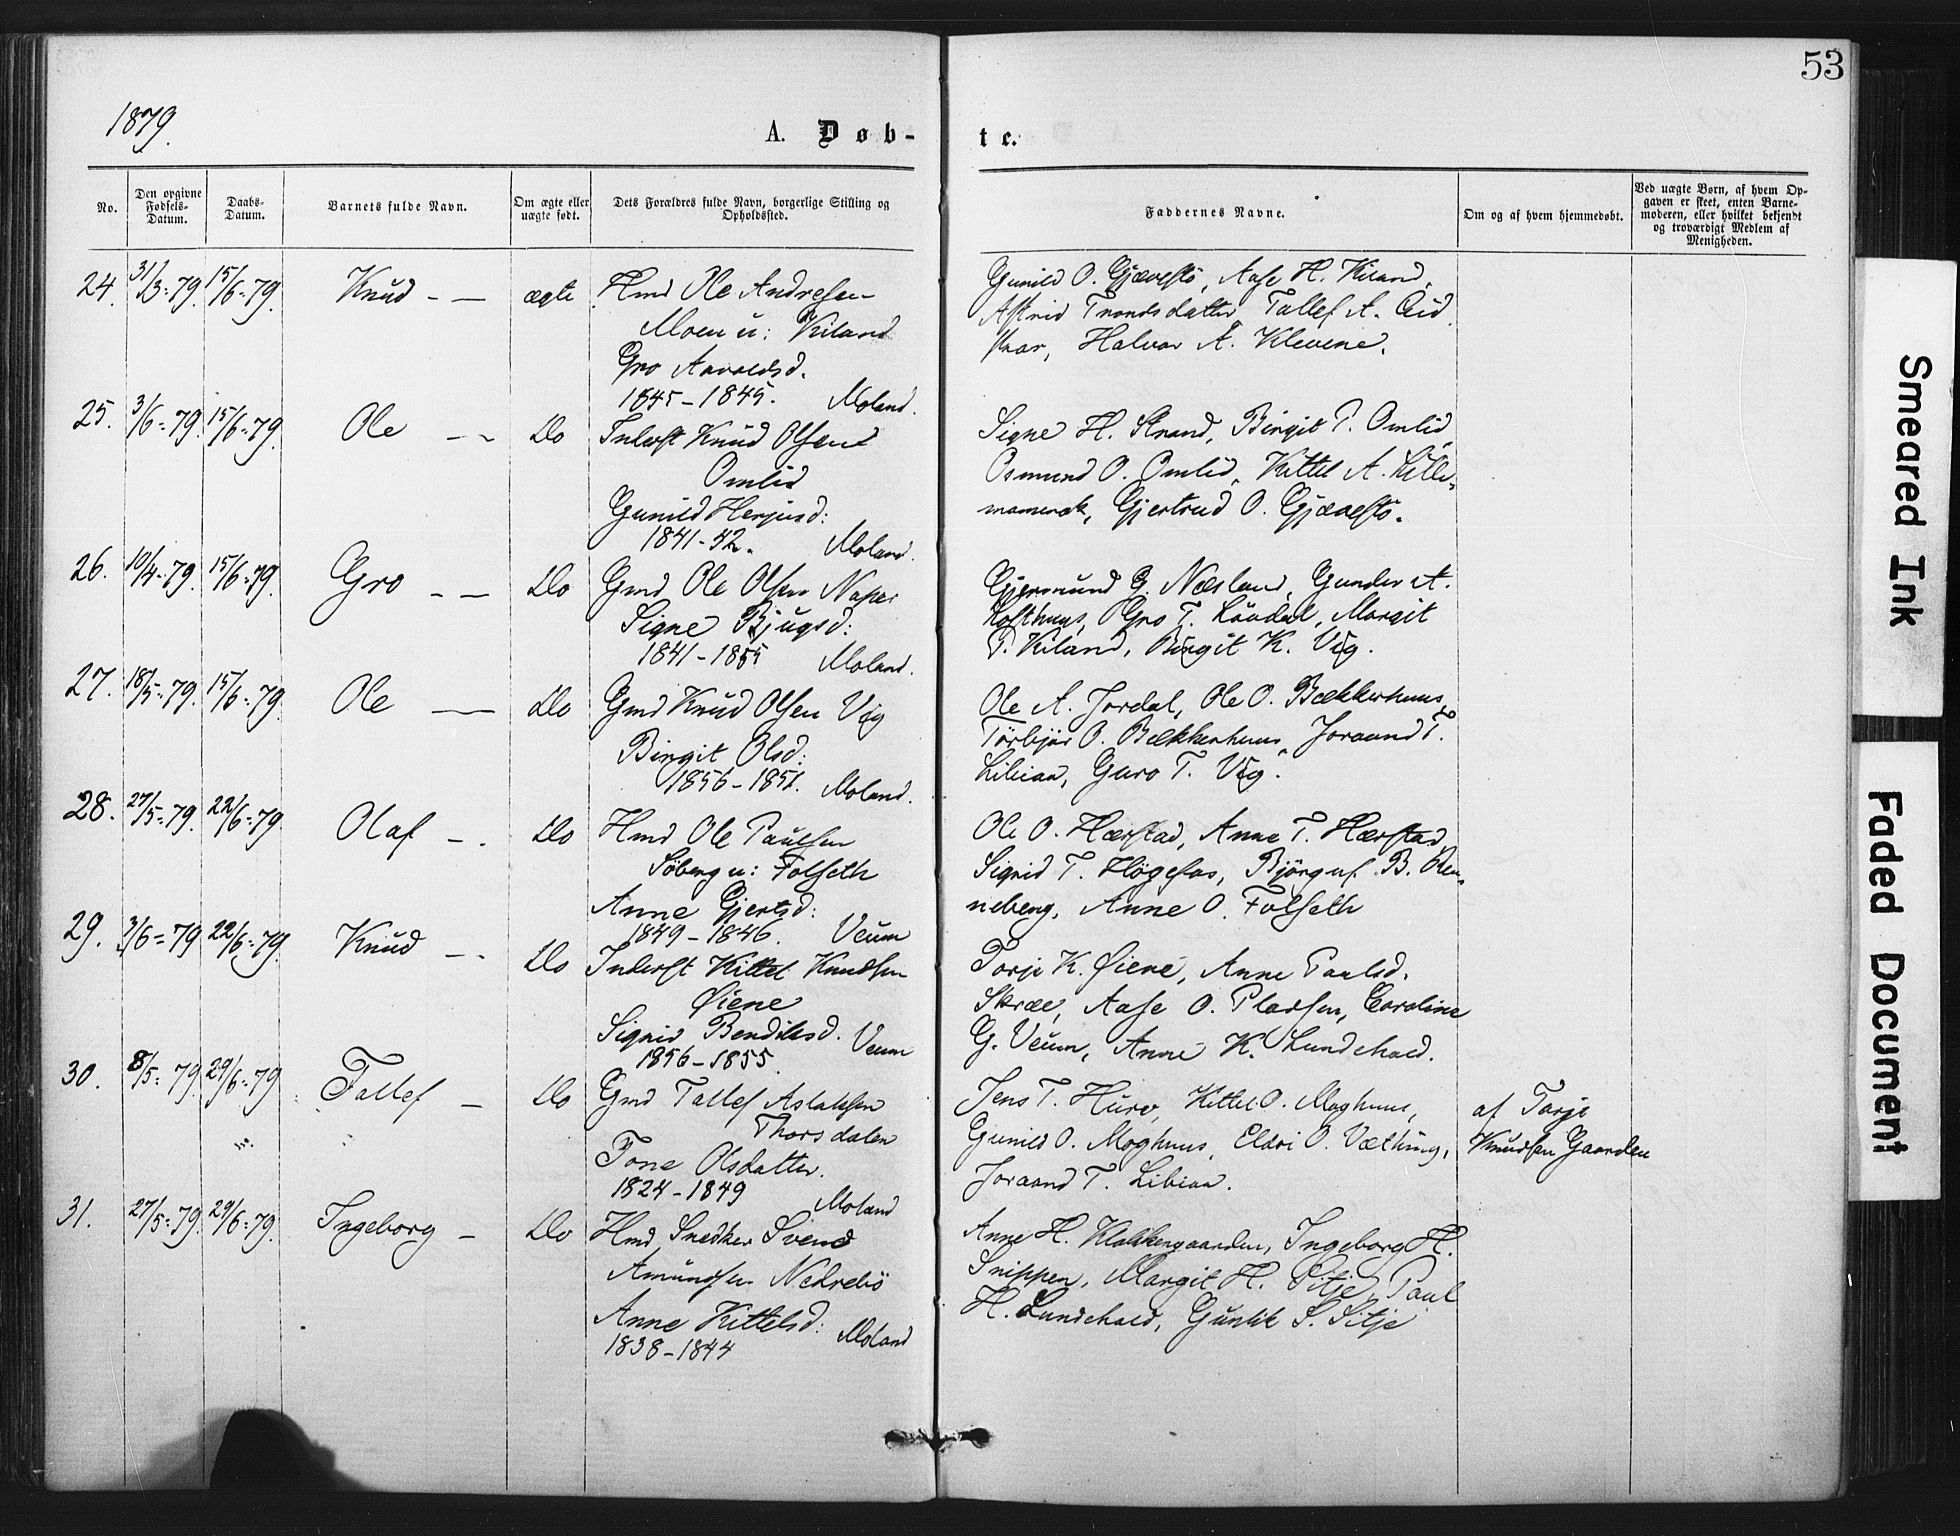 53
1879.
A. Døb-
te.
No.
Den opgivne Fødsels-Datum.
Daabs-Datum.
Barnets fulde Navn.
Om ægte eller uægte født.
Dets Forældres fulde Navn, borgerlige Stilling og Opholdssted.
Faddernes Navne.
Om og af hvem hjemmedøbt.
Ved uægte Børn, af hvem Opgaven er skeet, enten Barnemoderen, eller hvilket bekjendt og troværdigt Medlem af Menigheden.
24. 31/3-79. 15/6-79. Knud ægte Hmd Ole Andresen
Moen u: Kiland
Gro Aavoldsd.
1845-1845. Moland.
Gunild O. Gjævestö, Aase H. Kiland,
Astrid Trondsdatter, Tallef A. Qvid
skar, Halvor A. Klevene.
25. 3/6-79. 15/6-79. Ole Do Inderst Knud Olsen
Omlid
Gunild Herjusd:
1841-42. Moland.
Signe H. Strand, Birgit T. Omlid,
Osmund O. Omlid, Kittel A. Lille-
Gjertrud O. Gjævestö.
26. 10/4-79. 15/6-79. Gro Do Gmd Ole Olsen Naper
Signe Bjugsd:
1841-1855 Moland.
Gjermund G. Næsland, Gunder A.
Lofthuus, Gro T. Lövdal, Margit
P. Kiland, Birgit K. Vig.
27. 18/5-79. 15/6-79. Ole Do Gmd Knud Olsen Vig
Birgit Olsd:
1856-1851. Moland.
Ole A. Jordal, Ole O. Bækkerhuus,
Törbjör O. Bækkerhuus, Joraand T.
Libian, Guro T. Vig.
28. 27/5-79. 22/6-79. Olaf Do Hmd Ole Paulsen
Söberg u: Folseth
Anne Gjertsd:
1849-1846. Veum
Ole O. Hærstad, Anne T. Hærstad
Sigrid T. Högefos, Björguf B. Ren-
neberg, Anne O. Folseth
29. 3/6-79 22/6-79. Knud Do Inderst Kittel Knudsen
Øiene
Sigrid Bendiksd.
1856-1855. Veum
Torje K. Øiene, Anne Paulsd.
Skræe, Aase O. Pladsen, Caroline
G. Veum, Anne K. Lundehold.
30. 8/5-79 29/6-79 Tallef Do Gmd Tallef Aslaksen
Thorsdalen
Tone Olsdatter.
1824-1849 Moland
Jens T. Huro, Kittel O. Moghuus,
Gunild O. Moghuus, Eldri O. Væthing,
Joraand T. Libian.
af Torje
Knudsen Gaarden
31. 27/5-79. 29/6-79. Ingeborg Do Hmd Snedker Svend
Amundsen Nedrebö
Anne Kittelsd:
1838-1844 Moland
Anne H. Klokkergaarden, Ingeborg H.
Snippen, Margit H. Sitje, Paul
H. Lundehold, Gunlik S. Sitje
Smeared Ink
Faded Document